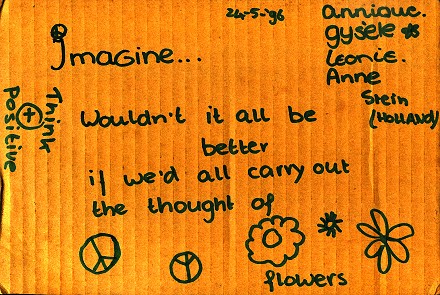 24-5-'96
Annique.
gysèle
Leonie.
Anne
Stein
(HOLLAND)
Imagine...
Think
+
Positive
Wouldn't it all be
better
if we'd all carry out
the thought of
flowers